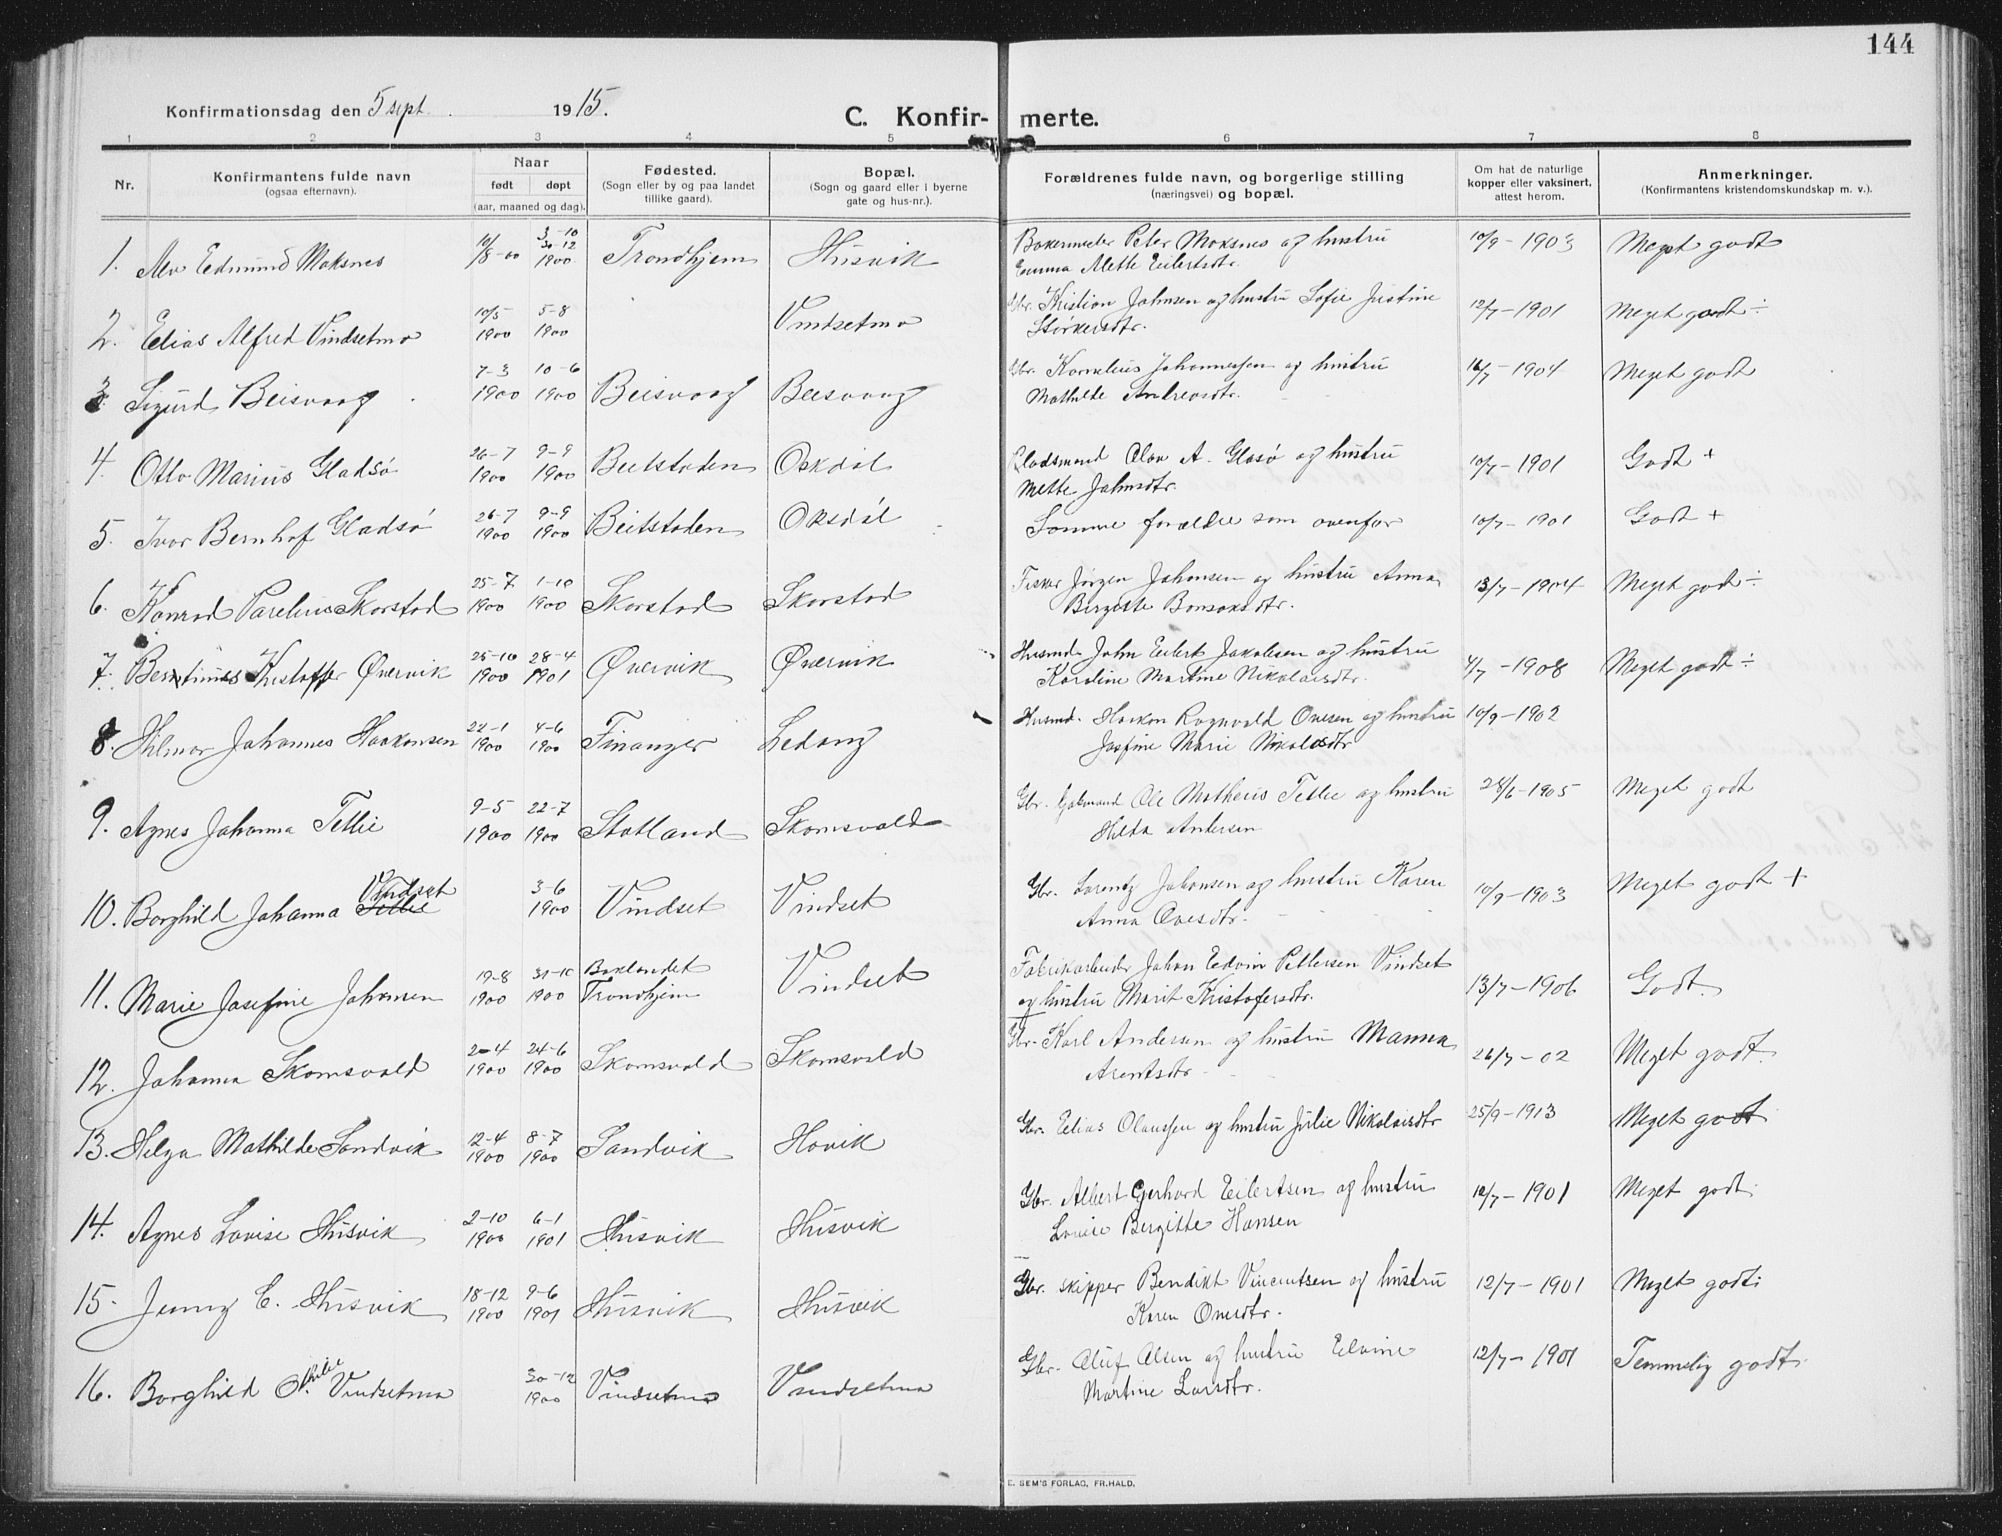 144
Konfirmationsdag den 5 sept. 1915.
C. Konfir- merte.
1 2 3 4 5 6 7 8
Nr.
Konfirmantens fulde navn
(ogsaa efternavn).
Naar
født døpt
(aar, maaned og dag).
Fødested.
(Sogn eller by og paa landet
tillike gaard).
Bopæl.
(Sogn og gaard eller i byerne
gate og hus-nr.).
Forældrenes fulde navn, og borgerlige stilling
(næringsvei) og bopæl.
Om hat de naturlige
kopper eller vaksinert,
attest herom.
Anmerkninger.
(Konfirmantens kristendomskundskap m. v.).
1. Alv Edmund Moksnes 10/8-00 3-10 30-12 1900 Trondhjem Husvik Bakermester Peter Moksnes og hustru
Emma Mette Eilertsdtr. 10/9-1903 Meget godt
2. Elias Alfred Vindsetmo 10/5 1900 5-8 1900 Vindsetmo Gbr. Kristian Johnsen og hustru Sofie Justine
Størkersdtr. 12/7-1901 Meget godt ÷
3. Sigurd Beisvaag 7-3 1900 10-6 1900 Beisvaag Beisvaag Gbr. Kornelius Johannessen og hustru
Mathilde Andreasdtr. 16/7-1904 Meget godt
4. Otto Marius Gladsø 26-7 1900 9-9 1900 Beitstaden Oksdal Pladsmand Olav A. Glasø og hustru
Mette Johnsdtr. 10/7-1901 Godt +
5. Ivar Bernhof Gladsø 26-7 1900 9-9 1900 Beitstaden Oksdal Samme forældre som ovenfor 10/7-1901 Godt +
6. Konrad Parelius Skorstad 25-7 1900 1-10 1900 Skorstad Skorstad Fisker Jørgen Johansen og hustru Anna
Bergitte Bonsaksdtr. 13/7-1904 Meget godt ÷
7. Kristoffer Øvervik 25-10 1900 28-4 1901 Øvervik Øvervik Husmd. John Eilert Jakobsen og hustru
Karoline Martine Nikolaisdtr. 4/7-1908 Meget godt ÷
8. Hilmar Johannes Haakonsen 22-1 1900 4-6 1900 Finanger Ledang Husmd. Haakon Ragnvald Ovesen og hustru
Josfine Marie Nikolaisdtr 10/9-1902
9. Agnes Johanna Tellie 9-5 1900 22-7 1900 Statland Skomsvold Gbr. Ole Matheus Tellie og hustru
Hilda Andersen 28/6-1905 Meget godt
10. Borghild Johanna Tellie Vindset 3-6 1900 Vindset Vindset Gbr. Lorentz Johansen og hustru Karen
Anna Ovesdtr. 10/9-1903 Meget godt +
11. Marie Josefine Johansen 19-8 1900 31-10 1900 Baklandet
Trondhjem Vindset Fabrikarbeider Johan Edvin Pettersen Vindset
og hustru Marit Kristofersdtr. 13/7-1906 Godt.
12. Johanna Skomsvold 2-4 1900 24-6 1900 Skomsvold Skomsvold Gbr. Karl Andersen og hustru Manna
Arentsdtr 26/7-02 Meget godt.
13. Helga Mathilde Sandvik 12-4 1900 8-7 1900 Sandvik Hovik Gbr. Elias Olaussen og hustru Julie Nikolaisdtr 25/9-1913 Meget godt
14. Agnes Lovise Husvik 2-10 1900 6-1 1901 Husvik Husvik Gbr. Albert Gerhard Eilertsen og hustru
Lovise Bergitte Hansen 12/7-1901 Meget godt.
15. Jenny E. Husvik 18-12 1900 9-6 1901 Husvik Husvik Gbr. skipper Bendikt Vincentsen og hustru
Karen Ovesdtr. 12/7-1901 Meget godt.
16. Borghild Vindsetmo 30-12 1900 Vindsetmo Vindsetmo Gbr. Oluf Olsen og hustru Elvine
Martine Larsdtr. 12/7-1901 Temmelig godt.
E. SEM'S FORLAG, FR.HALD.